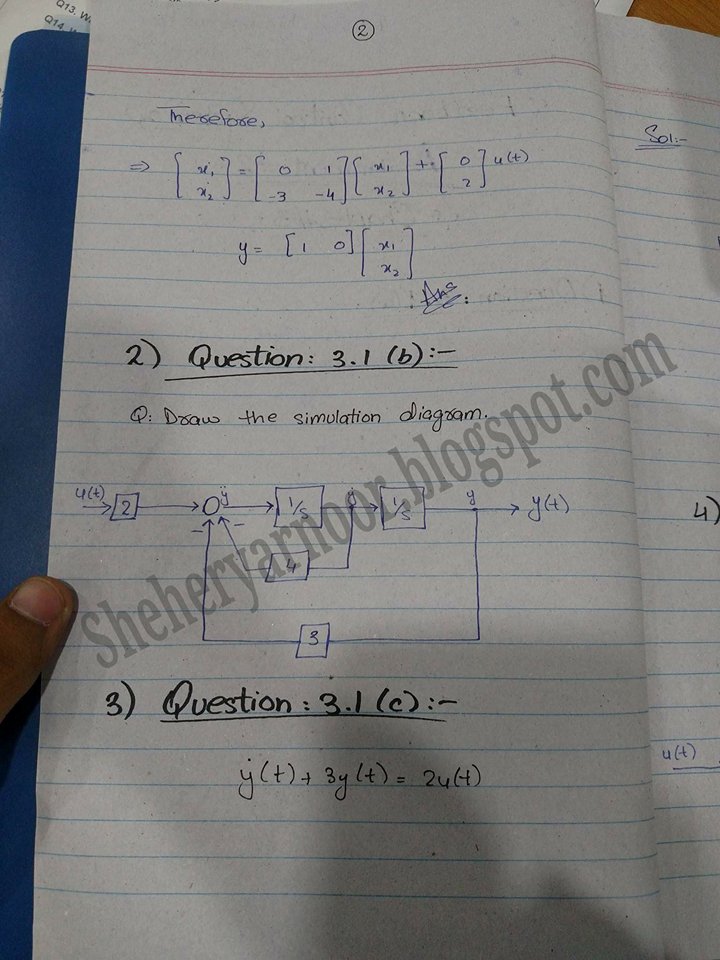 Q13. W
Q14. W
②
Therefore,
⇒ [ẋ₁ x₂] = [0 1 -3 -4] [x₁ x₂] + [0 2] u(t)
y = [1 0] [x₁ x₂]
Ans.
2) Question: 3.1 (b):-
Q: Draw the simulation diagram.
u(t) 2 ÿ 1/s ẏ 1/s y y(t)
- -
4
3
3) Question: 3.1 (c):-
ẏ(t) + 3y(t) = 2u(t)
Sol:-
4)
u(t)
Sheheryarnoor.blogspot.com